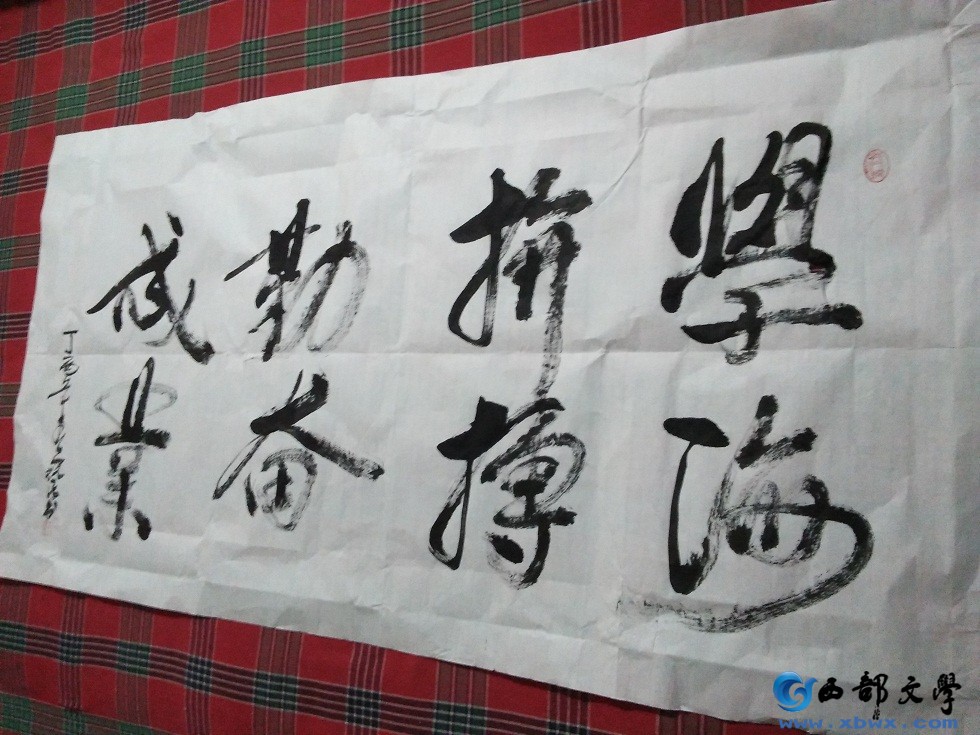 學海
拚搏
勤奋
成業
西部文學
www.xbwx.com